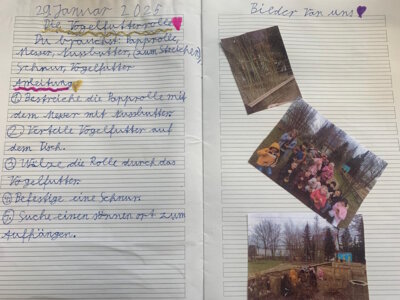 29. Januar 2025
Die Vogelfutterrolle
Du brauchst: Papprolle,
Messer, Nussbutter, (zum Streichen),
Schnur, Vogelfutter
Anleitung
① Bestreiche die Papprolle mit
dem Messer mit Nussbutter.
② Verteile Vogelfutter auf
dem Tisch.
③ Wälze die Rolle durch das
Vogelfutter.
④ Befestige eine Schnur.
⑤ Suche einen schönen ort zum
Aufhängen.
Bilder von uns